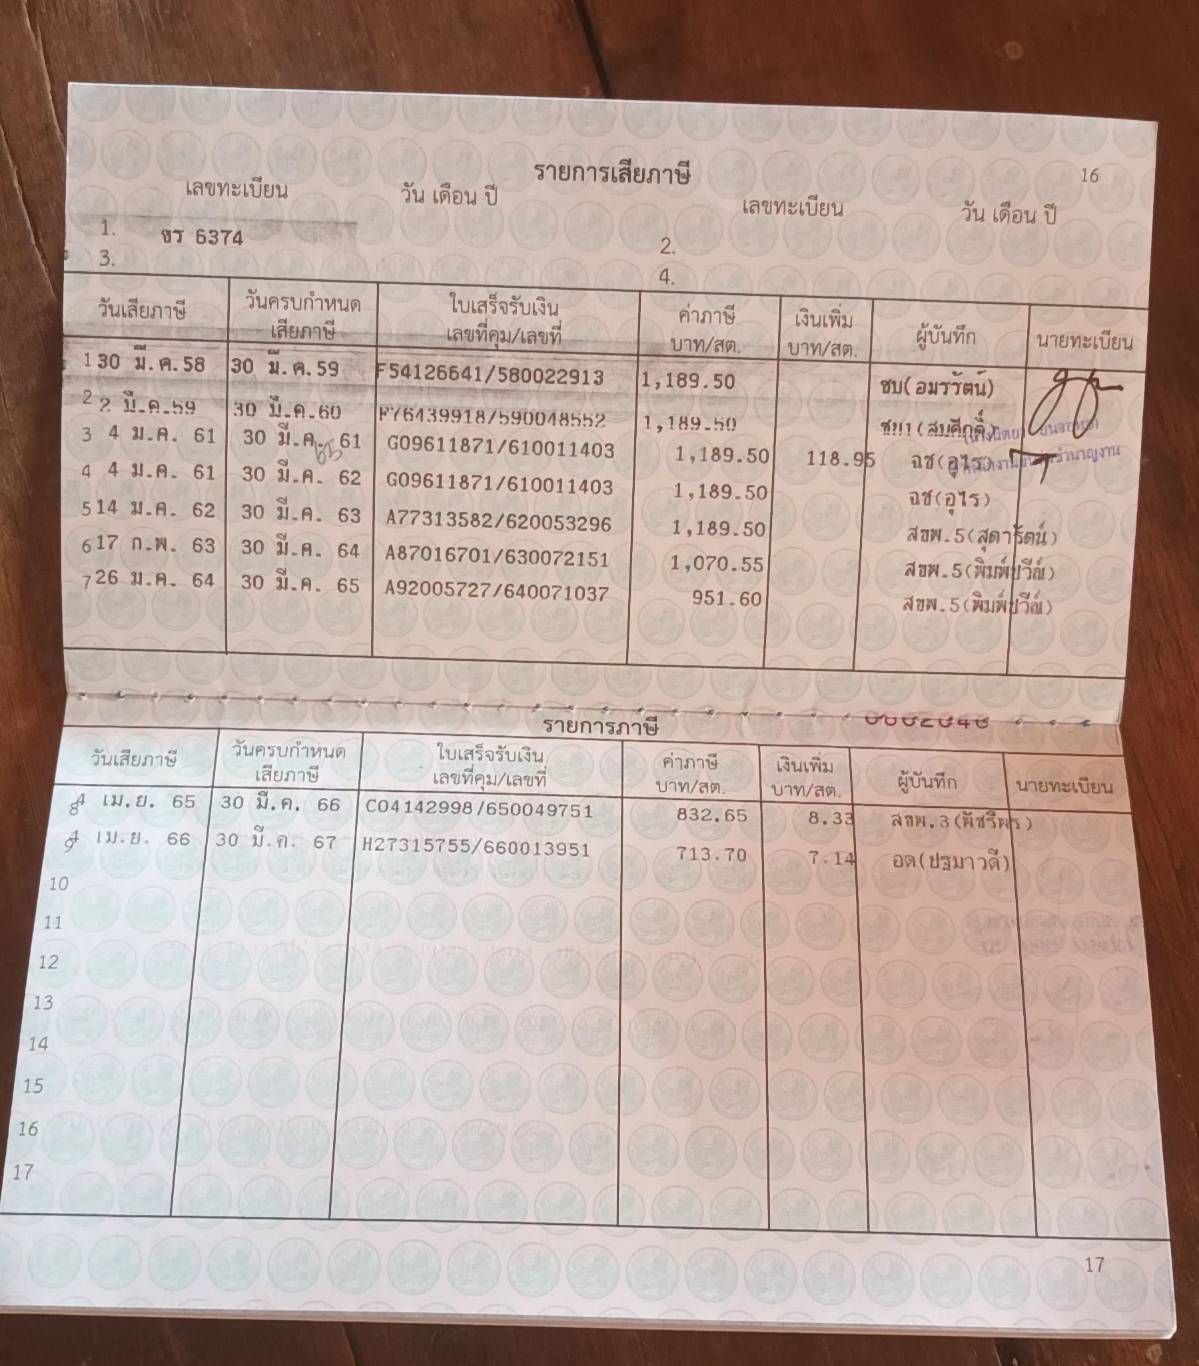 รายการเสียภาษี 16
เลขทะเบียน วัน เดือน ปี เลขทะเบียน วัน เดือน ปี
1. ขร 6374 2.
3. 4.
วันเสียภาษี วันครบกำหนดเสียภาษี ใบเสร็จรับเงิน เลขที่คุม/เลขที่ ค่าภาษี บาท/สต. เงินเพิ่ม บาท/สต. ผู้บันทึก นายทะเบียน
1 30 มี.ค.58 30 มี.ค.59 F54126641/580022913 1,189.50 ชบ(อมรรัตน์)
2 2 มี.ค.59 30 มี.ค.60 F76439918/590048552 1,189.50
3 4 ม.ค. 61 30 มี.ค. 61 G09611871/610011403 1,189.50 118.95 ฉช(อุไร)
4 4 ม.ค. 61 30 มี.ค. 62 G09611871/610011403 1,189.50 ฉช(อุไร)
5 14 ม.ค. 62 30 มี.ค. 63 A77313582/620053296 1,189.50 สขพ.5(สุดารัตน์)
6 17 ก.พ. 63 30 มี.ค. 64 A87016701/630072151 1,070.55 สขพ.5(พิมพ์ปวีณ์)
7 26 ม.ค. 64 30 มี.ค. 65 A92005727/640071037 951.60 สขพ.5(พิมพ์ปวีณ์)
รายการภาษี
วันเสียภาษี วันครบกำหนดเสียภาษี ใบเสร็จรับเงิน เลขที่คุม/เลขที่ ค่าภาษี บาท/สต. เงินเพิ่ม บาท/สต. ผู้บันทึก นายทะเบียน
8 4 เม.ย. 65 30 มี.ค. 66 C04142998/650049751 832.65 8.33 สขพ.3(พัชรีพร)
9 4 เม.ย. 66 30 มี.ค. 67 H27315755/660013951 713.70 7.14 อด(ปฐมาวดี)
10
11
12
13
14
15
16
17
17